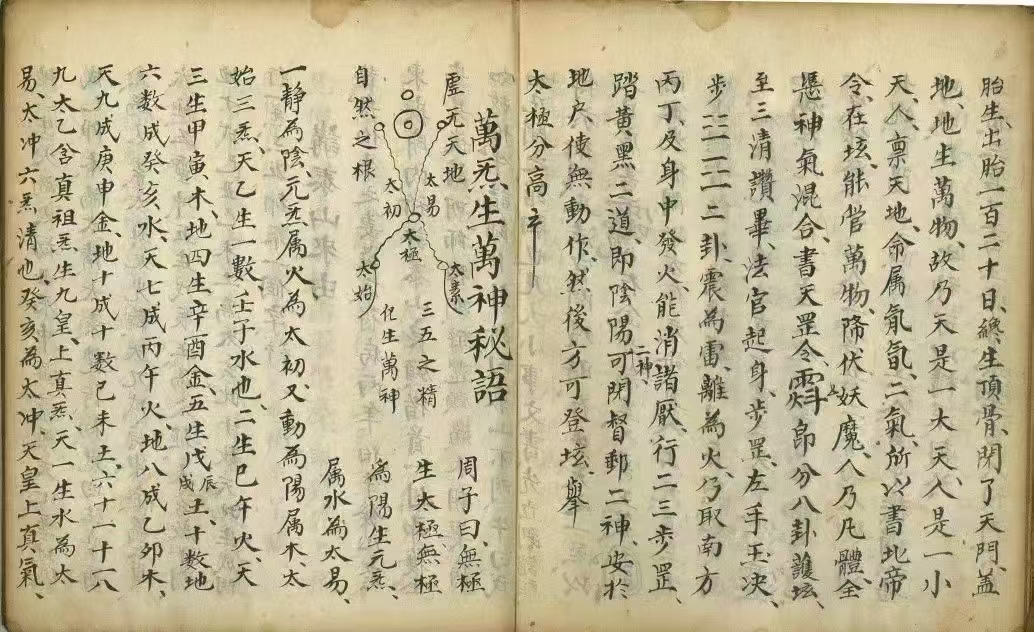 胎生、出胎一百二十日、終生頂骨、閉了天門、盖
地、地生萬物、故乃天是一大天、人是一小
天、人禀天地、命属氘氤、二氣、所以書北帝
令、在垓、能管萬物、降伏妖魔、人乃凡體、全
慿神氣混合、書天罡令 昂分八卦、護垓、
至三清讚畢、法官起身、步罡、左手玉决、
步二二二二卦、震為雷、離為火、乃取南方
丙丁、及身中發火、能消諸厭、行二三步罡、
踏黄、黑二道、即陰陽、可閉督郵二神、二神安於
地户、使無動作、然後方可登垓、舉
太極分高
萬炁生萬神秘語
虚无天地
自然之根
太易
太初
太極
太素
太始
三五之精
化生萬神
周子曰、無極
生太極無極
為陽生元炁、
属水為太易、
一静為陰、元炁属火為太初、又動為陽属木、太
始三炁、天乙生一數、壬子水也、二生巳午火、天
三生甲寅木、地四生、辛酉金、五生戊辰戌土、十數地
六數成癸亥水、天七成丙午火、地八成乙卯木、
天九成庚申金、地十成十數己未土、六十一十八
九太乙含真祖炁生九皇、上真炁、天一生水為太
易、太冲六炁清也、癸亥為太冲、天皇上真氣、